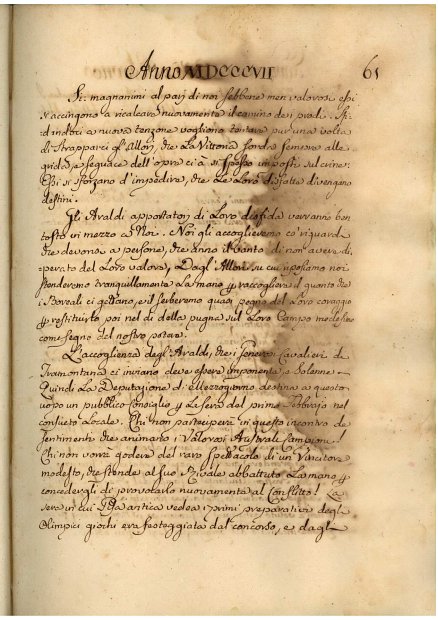 Anno MDCCCVII 61
Si: magnanimi al parj di noi sebbene men valorosi essi
s'accingono a ricalcare nuovamente il camino dei prodi. Ri:
:dindosi a nuova tenzone vogliono tentare pur una volta
di strapparci gl'Allori, che La Vittoria sorda sempre alle
grida, e seguace dell'opre ci à si spesso imposti sul crine:
Essi si sforzano d'impedire, che Le Loro disfatte divengano
destini.
Gli Araldi apportatorj di Loro disfida verranno ben
tosto in mezzo a Noi. Noi gli accoglieremo co' riguardi
che devonsi a persone, che anno il vanto di non avere di:
:sperato del Loro valore. Dagl'Allori su cui riposiamo noi
stenderemo tranquillamente La mano p raccogliere il guanto che
i Boreali ci gettano, e il serberemo quasi pegno del Loro coraggio
p restituirlo poi nel dì della pugna sul Loro Campo medesimo
come segno del nostro potere.
L'accoglienza degl'Araldi, che i Generosi Cavalieri di
Tramontana ci inviano deve essere imponente, e Solenne.
Quindi La Deputazione di Mezzogiorno destina a questo
uopo un pubblico Consiglio p La sera del primo Febbrajo nel
consueto Locale. Chi non parteciperà in questo incontro de
sentimenti che animano i Valorosi Australi Campioni!
Chi non vorrà godere del raro spettacolo di un Vincitore
modesto, che stende al suo Rivale abbattuto La mano p
concedergli di provocarlo nuovamente al Conflitto! La
sera in cui Pisa antica vedea i primi preparativi degl'
Olimpici giochi era festeggiata dal concorso, e dagl'